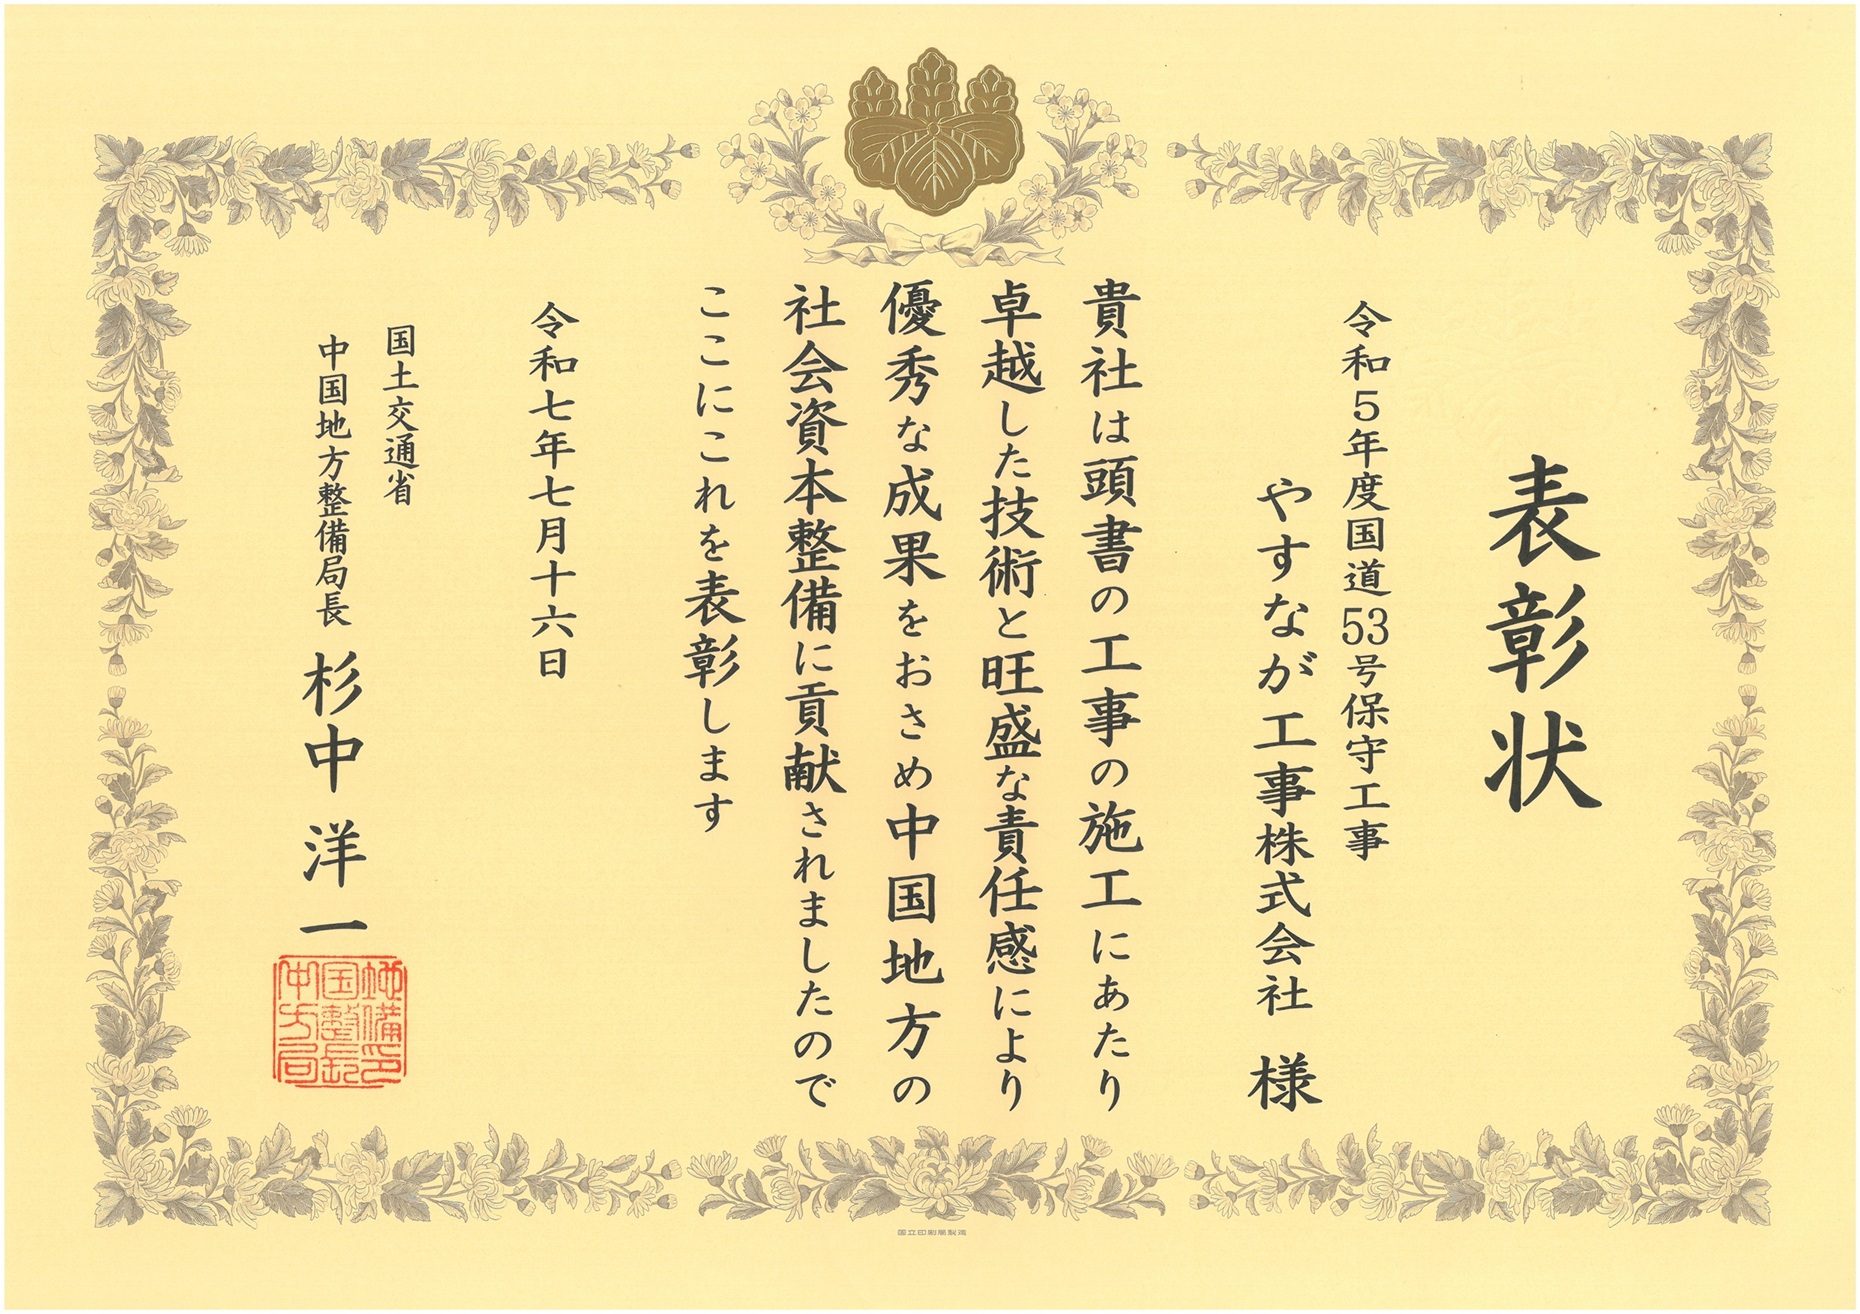 表彰状
令和５年度国道53号保守工事
やすなが工事株式会社 様
貴社は頭書の工事の施工にあたり
卓越した技術と旺盛な責任感により
優秀な成果をおさめ中国地方の
社会資本整備に貢献されましたので
ここにこれを表彰します
令和七年七月十六日
国土交通省
中国地方整備局長 杉中洋一
中国地方整備局長印
国立印刷局製造